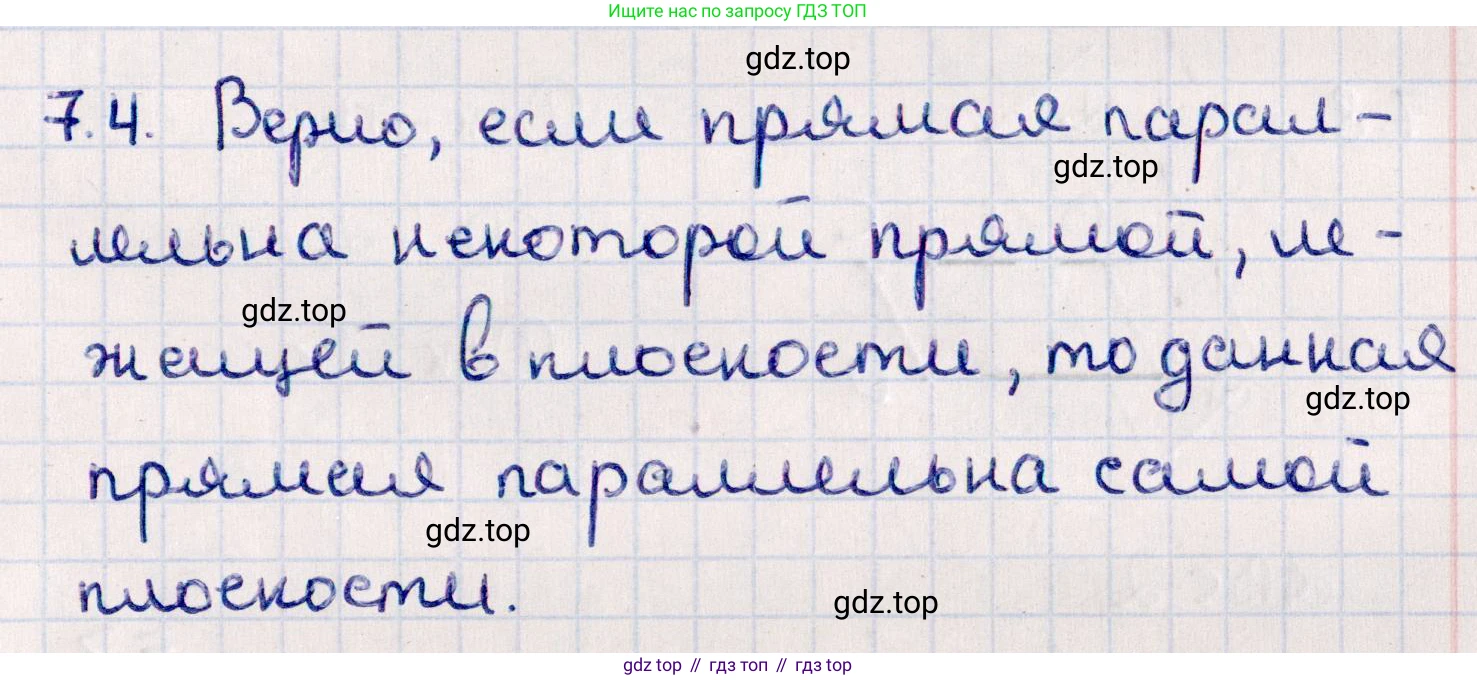 Ищите нас по запросу ГДЗ ТОП
gdz.top
7.4. Верно, если прямая парал-
gdz.top
лельна некоторой прямой, ле-
gdz.top
жащей в плоскости, то данная
gdz.top
прямая параллельна самой
gdz.top
плоскости.
gdz.top
gdz top // гдз топ // гдз top